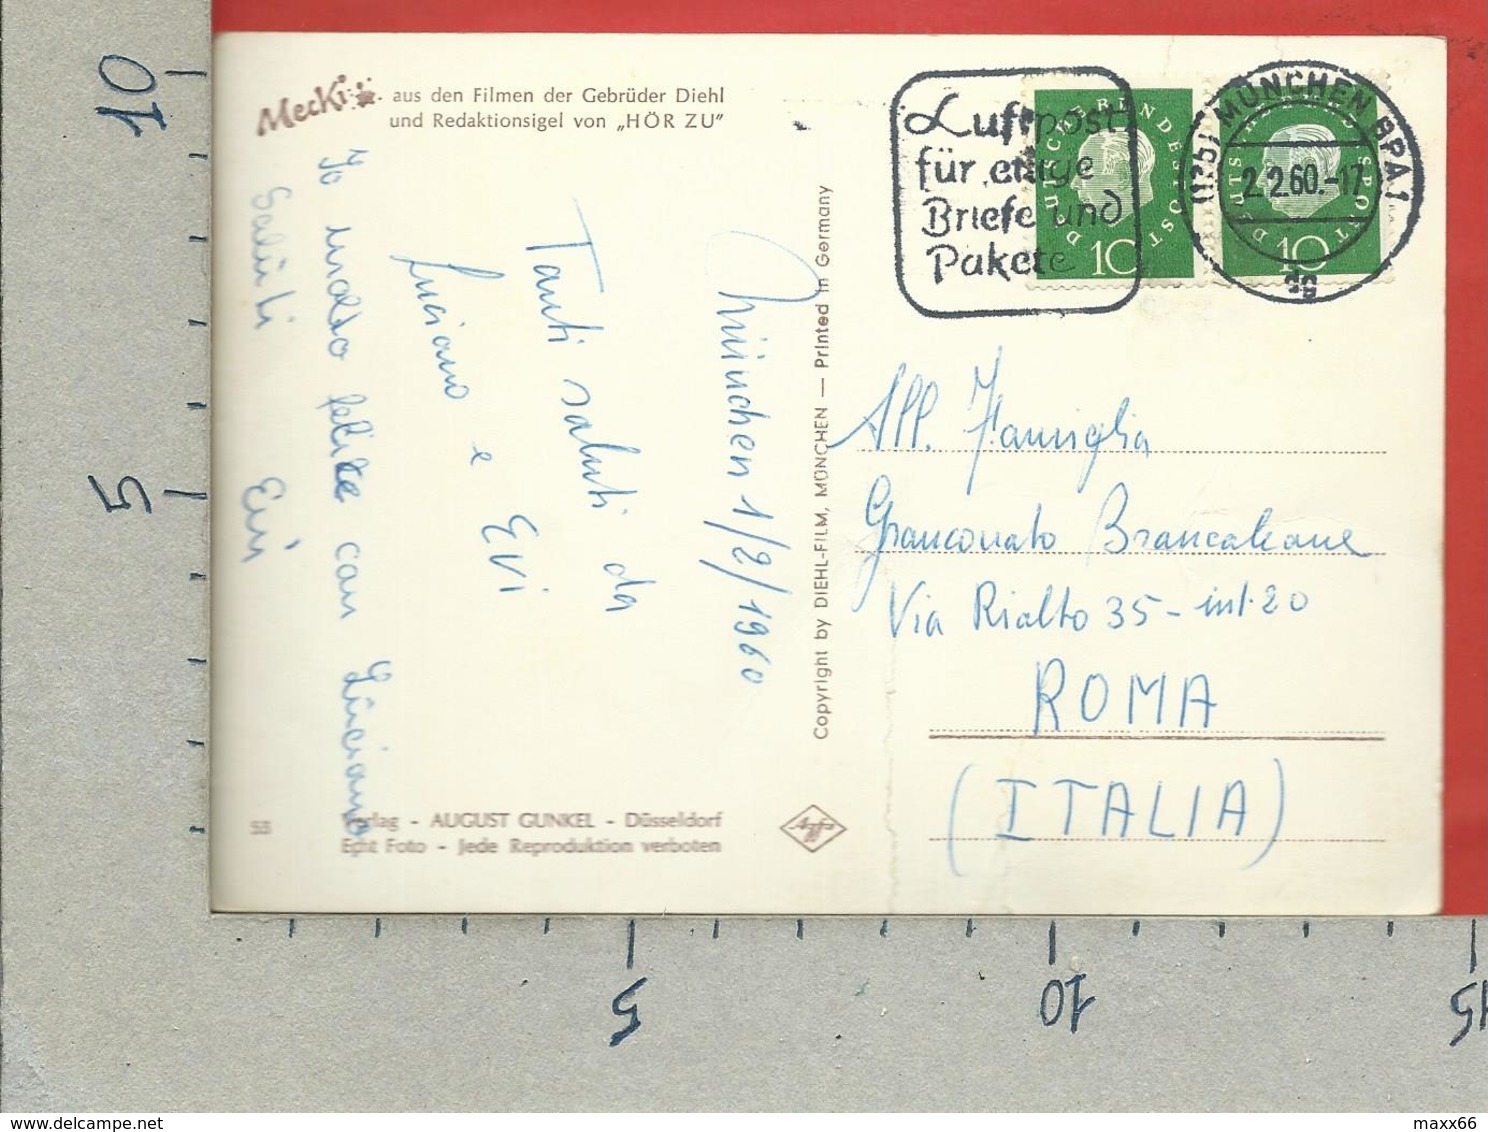 Mecki
aus den Filmen der Gebrüder Diehl
und Redaktionsigel von „HÖR ZU"
München 1/2/1960
Tanti saluti da
Luciano e Evi
Io molto felice con Luciano
Saluti Evi
53
Verlag - AUGUST GUNKEL - Düsseldorf
Echt Foto - Jede Reproduktion verboten
Copyright by DIEHL-FILM, MÜNCHEN — Printed in Germany
Agfa
Luftpost
für eilige
Briefe und
Pakete
DEUTSCHE BUNDESPOST
10
DEUTSCHE BUNDESPOST
10
MÜNCHEN BPA 1
2.2.60.-17
All. Famiglia
Brancaleone
Via Rialto 35 - int. 20
ROMA
(ITALIA)
10
5
5
10
15
delcampe.net
maxx66